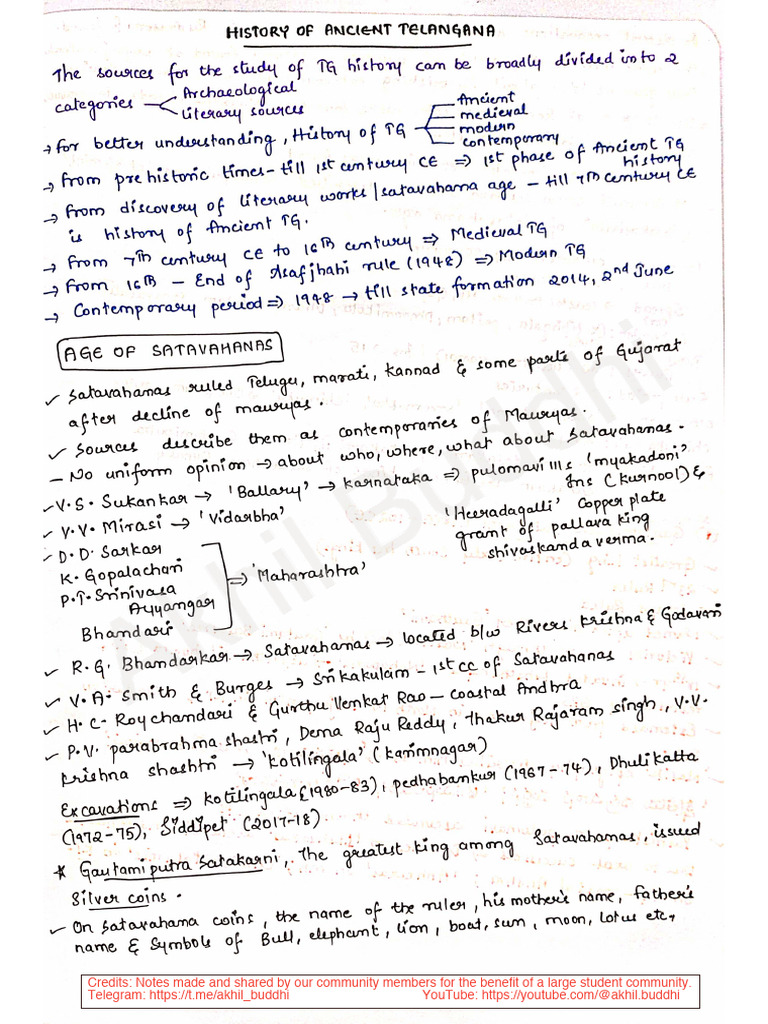 HISTORY OF ANCIENT TELANGANA
The sources for the study of TG history can be broadly divided into 2
categories Archaeological
Literary sources
→ for better understanding, History of TG Ancient
medieval
modern
contemporary
→ from prehistoric times - till 1st century CE ⇒ 1st phase of Ancient TG history
→ from discovery of literary works / satavahama age - till 7th century CE
is history of Ancient TG.
→ From 7th century CE to 16th century ⇒ Medieval TG
→ From 16th - End of Asafjhahi rule (1948) ⇒ Modern TG
→ Contemporary period ⇒ 1948 → till state formation 2014, 2nd June
AGE OF SATAVAHANAS
✓ Satavahanas ruled Telugu, marati, kannad & some parts of Gujarat
after decline of mauryas.
✓ Sources describe them as contemporaries of Mauryas.
- No uniform opinion → about who, where, what about Satavahanas.
✓ V.S. Sukankar → 'Ballary' → karnataka ⇒ pulomavi IIIs 'myakadoni'
Ins (kurnool) &
✓ V.V. Mirasi → 'Vidarbha'
'Heeradagalli' Copper plate
grant of pallava king
shivaskanda verma.
✓ D.D. Sarkar
K. Gopalachari
P.T. Srinivasa
Ayyangar
Bhandari
⇒ 'Maharashtra'
✓ R.G. Bhandarkar → Satavahanas → located b/w Rivers Krishna & Godavari
✓ V.A. Smith & Burges → Srikakulam - 1st cc of Satavahanas
✓ H.C. Roychandari & Gurthu Venkat Rao - coastal Andhra
✓ P.V. parabrahma shastri, Dema Raju Reddy, Thakur Rajaram singh, V.V.
krishna shashtri → 'kotilingala' (karimnagar)
Excavations ⇒ kotilingala (1980-83), pedhabankur (1967-74), Dhulikatta
(1972-75), Siddipet (2017-18)
* Gautamiputra Satakarni, The greatest king among Satavahanas, issued
Silver coins.
✓ On Satavahana coins, the name of the ruler, his mother's name, father's
name & symbols of Bull, elephant, lion, boat, sun, moon, lotus etc,
Akhil Buddhi
Credits: Notes made and shared by our community members for the benefit of a large student community.
Telegram: https://t.me/akhil_buddhi YouTube: https://youtube.com/@akhil.buddhi